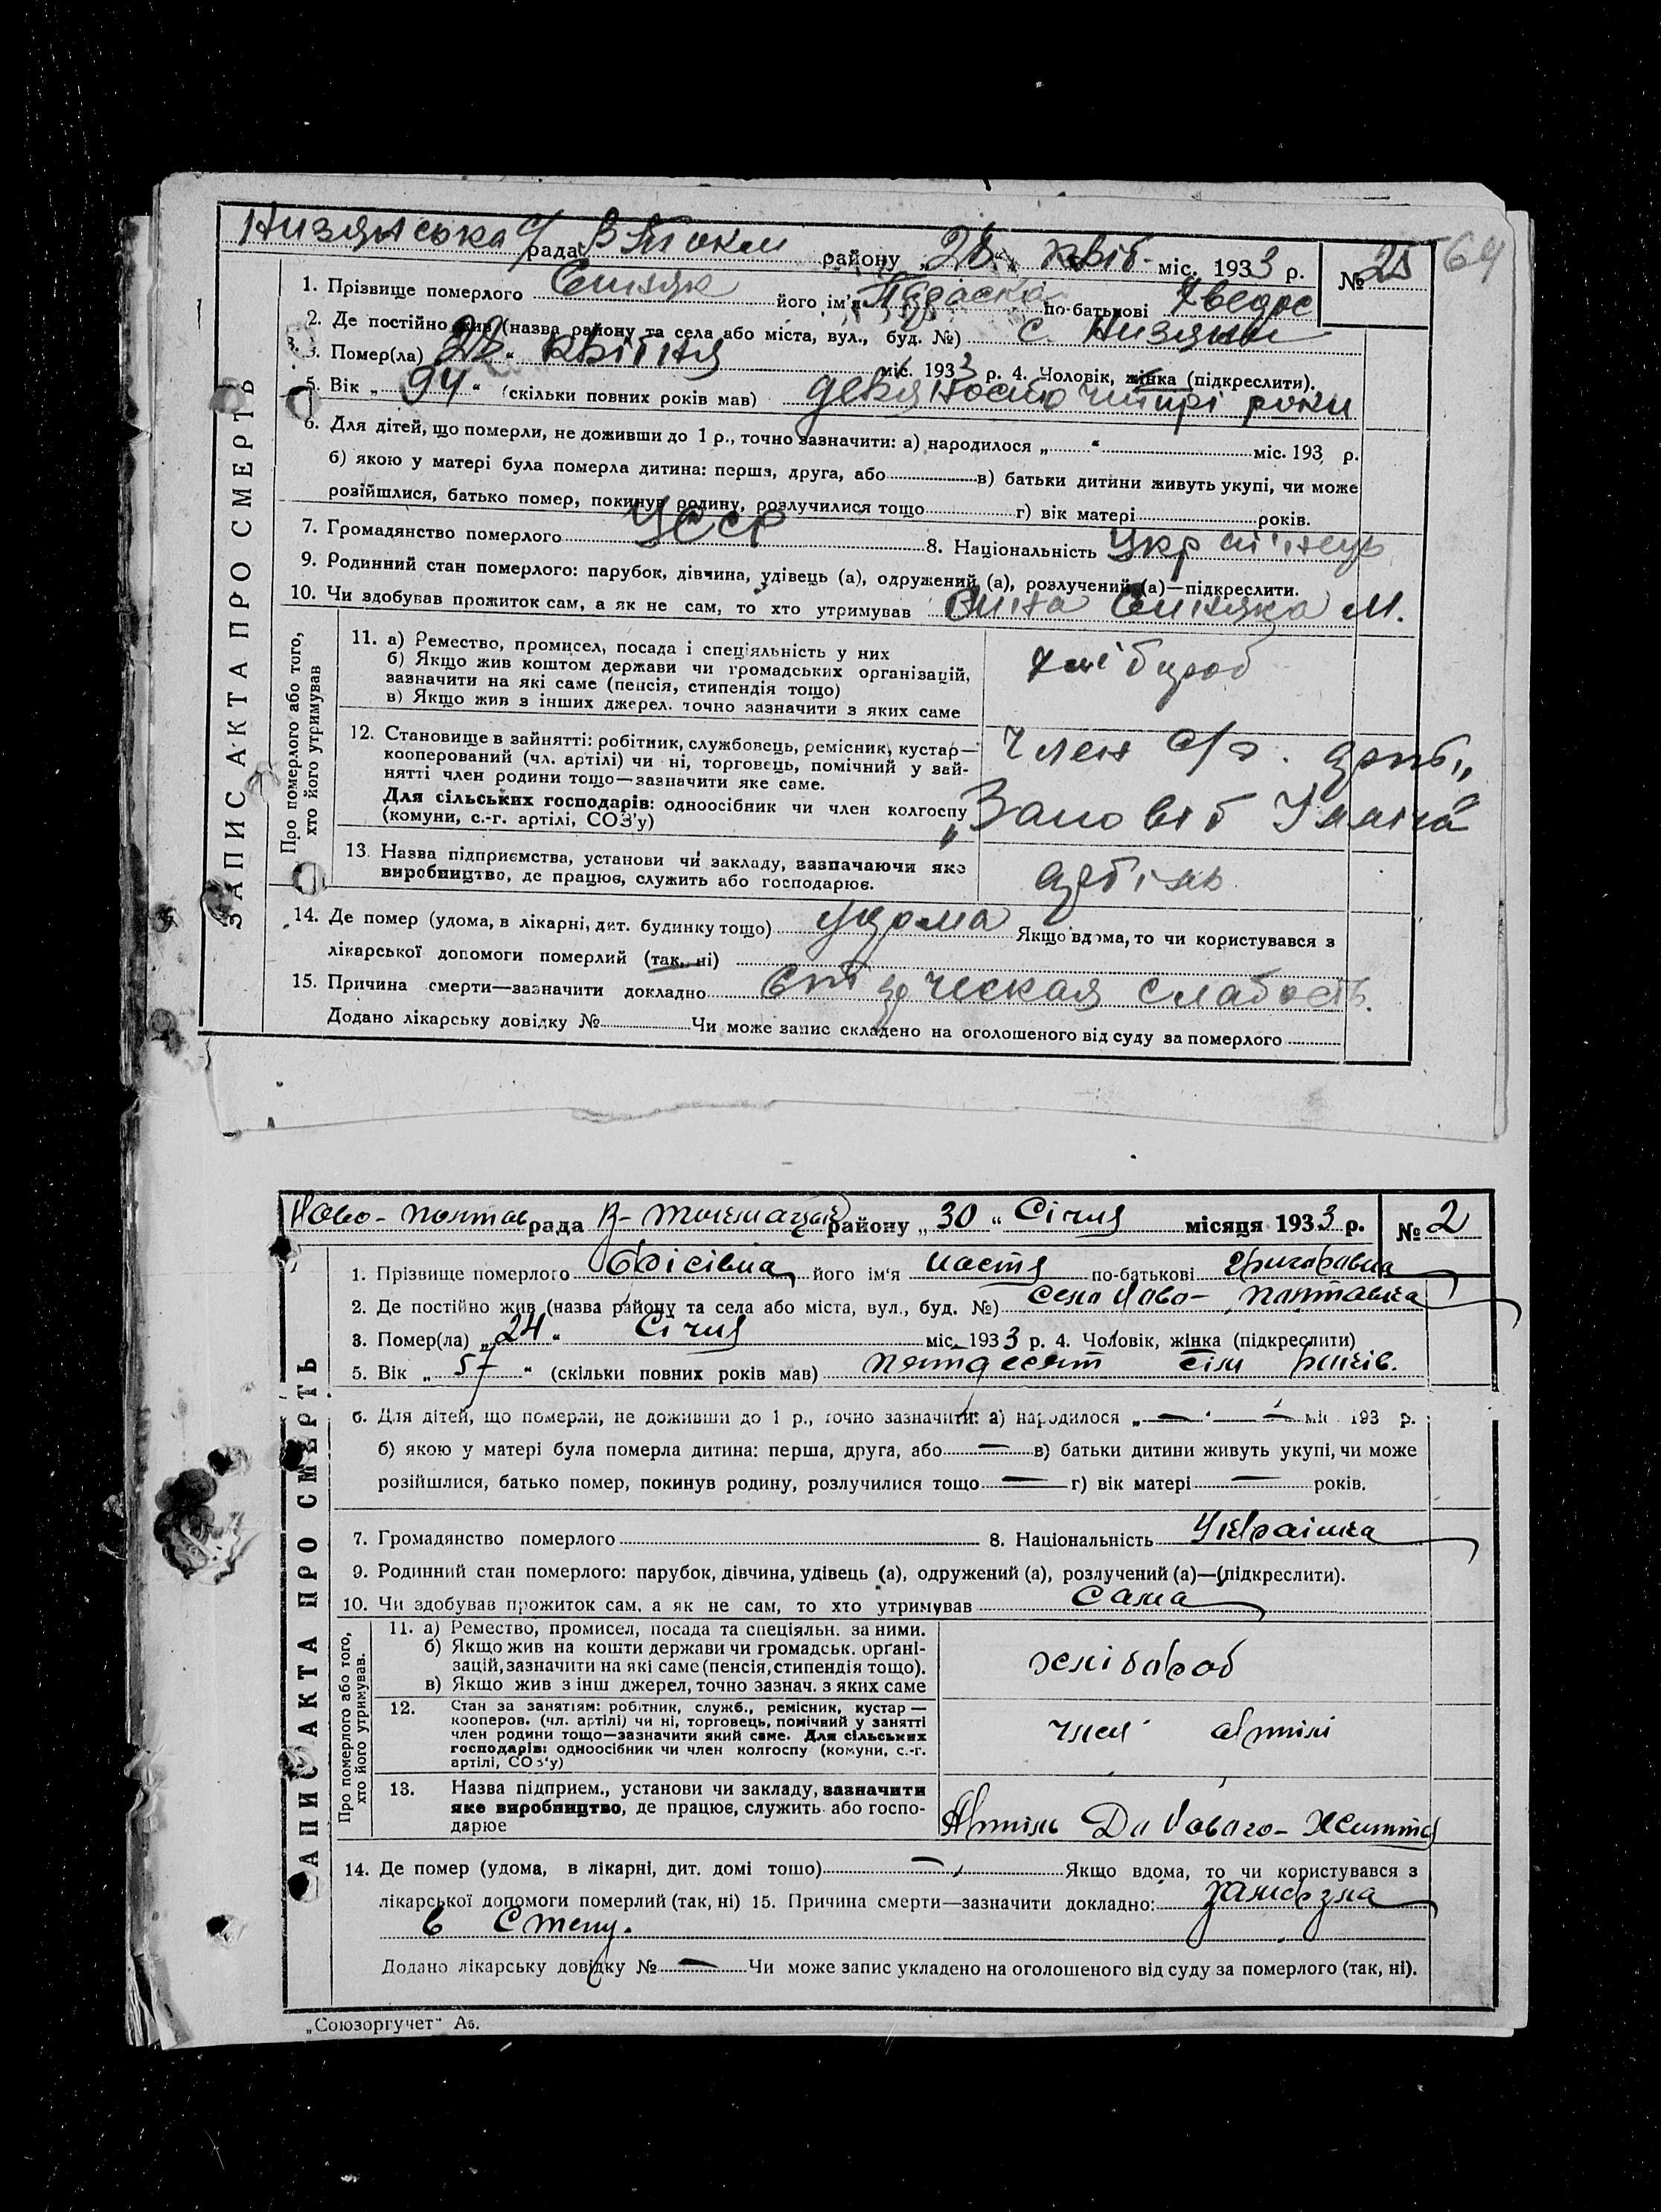 рада району „28“ квіт- міс. 1933 р. № 25 64
ЗАПИС АКТА ПРО СМЕРТЬ
1. Прізвище померлого його ім'я Параска по-батькові
2. Де постійно жив (назва району та села або міста, вул., буд. №) с. Низяни
3. Помер(ла) „28“ квітня міс. 1933 р. 4. Чоловік, жінка (підкреслити).
5. Вік „94“ (скільки повних років мав) девяносто чотирі роки
6. Для дітей, що померли, не доживши до 1 р., точно зазначити: а) народилося „ “ міс. 193 р.
б) якою у матері була померла дитина: перша, друга, або в) батьки дитини живуть укупі, чи може
розійшлися, батько помер, покинув родину, розлучилися тощо г) вік матері років.
7. Громадянство померлого УССР 8. Національність Українець
9. Родинний стан померлого: парубок, дівчина, удівець (а), одружений (а), розлучений (а)—підкреслити.
10. Чи здобував прожиток сам, а як не сам, то хто утримував М.
Про померлого або того, хто його утримував
11. а) Ремество, промисел, посада і спеціяльність у них
б) Якщо жив коштом держави чи громадських організацій,
зазначити на які саме (пенсія, стипендія тощо)
в) Якщо жив з інших джерел. точно зазначити з яких саме
хлібороб
12. Становище в зайнятті: робітник, службовець, ремісник, кустар—
кооперований (чл. артілі) чи ні, торговець, помічний у зай-
нятті член родини тощо—зазначити яке саме.
Для сільських господарів: одноосібник чи член колгоспу
(комуни, с.-г. артілі, СОЗ'у)
Член с/г.
„Заповіт Ілліча“
13. Назва підприємства, установи чи закладу, зазначаючи яке
виробництво, де працює, служить або господарює.
артіль
14. Де помер (удома, в лікарні, дит. будинку тощо) удома Якщо вдома, то чи користувався з
лікарської допомоги померлий (так, ні)
15. Причина смерти—зазначити докладно слабость.
Додано лікарську довідку № Чи може запис складено на оголошеного від суду за померлого
Ново-Полтав рада В-Токмацький району „30“ Січня місяця 1933 р. № 2
ЗАПИС АКТА ПРО СМЕРТЬ
1. Прізвище померлого його ім'я Настя по-батькові Григоровна
2. Де постійно жив (назва району та села або міста, вул., буд. №) село Ново-Полтавка
3. Помер(ла) „24“ Січня міс. 1933 р. 4. Чоловік, жінка (підкреслити)
5. Вік „57“ (скільки повних років мав) пятдесят сім років.
6. Для дітей, що померли, не доживши до 1 р., точно зазначити: а) народилося „—“ — міс. 193 р.
б) якою у матері була померла дитина: перша, друга, або — в) батьки дитини живуть укупі, чи може
розійшлися, батько помер, покинув родину, розлучилися тощо — г) вік матері — років.
7. Громадянство померлого 8. Національність Українка
9. Родинний стан померлого: парубок, дівчина, удівець (а), одружений (а), розлучений (а)—(підкреслити).
10. Чи здобував прожиток сам, а як не сам, то хто утримував сама
Про померлого або того, хто його утримував.
11. а) Ремество, промисел, посада та спеціяльн. за ними.
б) Якщо жив на кошти держави чи громадськ. органі-
зацій, зазначити на які саме (пенсія, стипендія тощо).
в) Якщо жив з інш джерел, точно зазнач. з яких саме
хлібороб
12. Стан за занятіям: робітник, служб., ремісник, кустар —
кооперов. (чл. артілі) чи ні, торговець, помічний у занятті
член родини тощо—зазначити який саме. Для сільських
господарів: одноосібник чи член колгоспу (комуни, с.-г.
артілі, СОЗ'у)
член артілі
13. Назва підприєм., установи чи закладу, зазначити
яке виробництво, де працює, служить або госпо-
дарює
Артіль До Нового-Життя
14. Де помер (удома, в лікарні, дит. домі тощо) — Якщо вдома, то чи користувався з
лікарської допомоги померлий (так, ні) 15. Причина смерти—зазначити докладно: замерзла
в степу.
Додано лікарську довідку № — Чи може запис укладено на оголошеного від суду за померлого (так, ні).
„Союзоргучет“ А5.